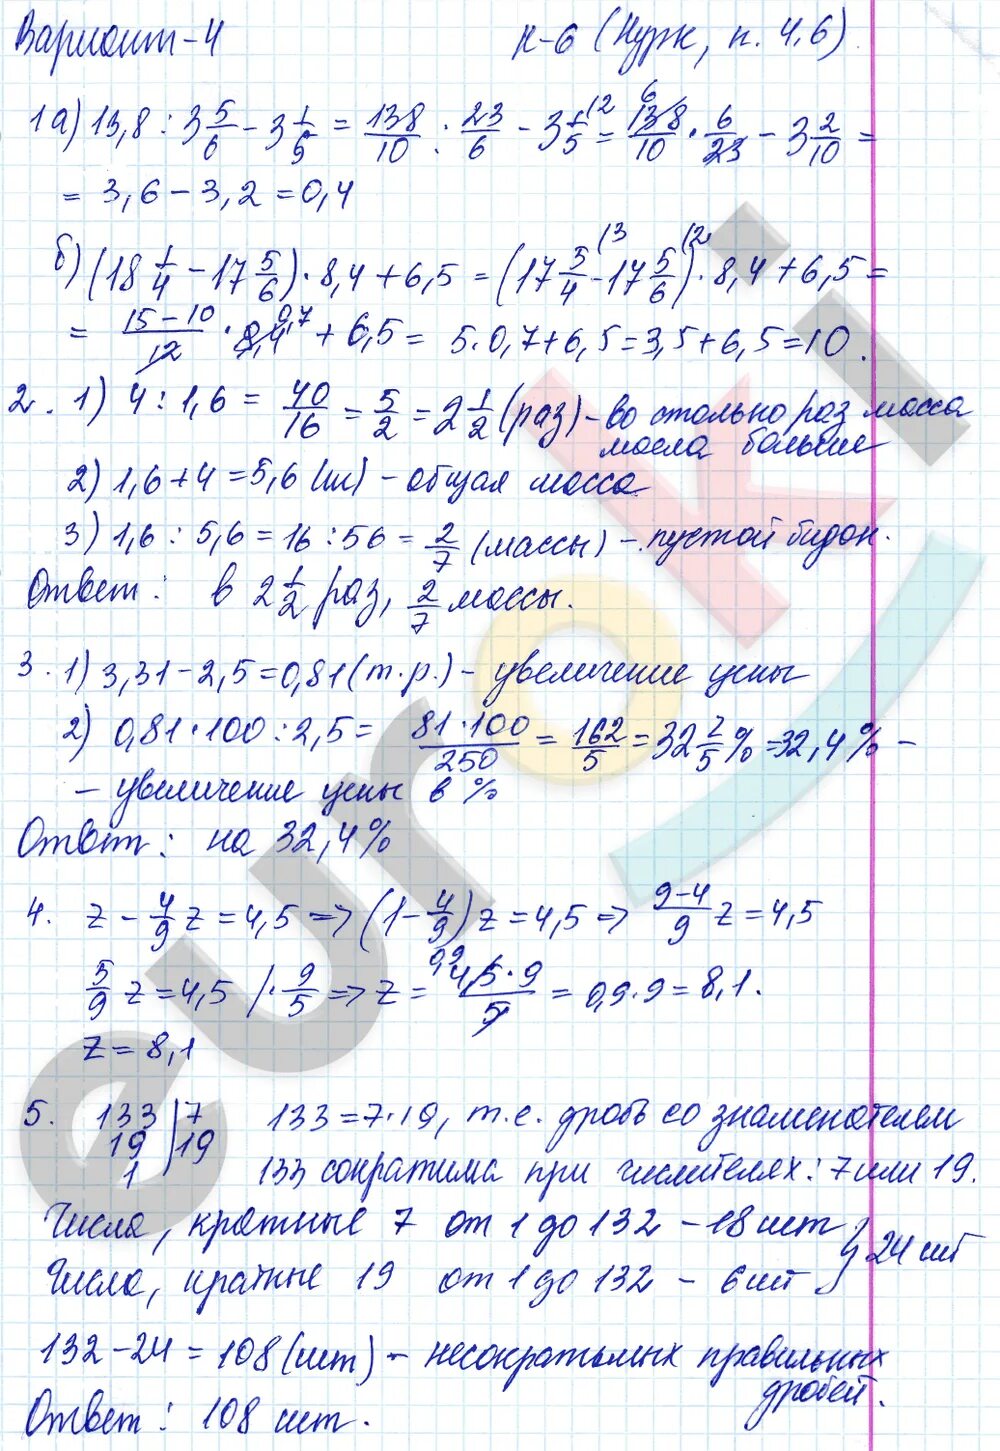 Вариант-4 К-6 (Нурк, п. 4,6)
1а) 13,8 : 3 5/6 - 3 1/5 = 138/10 : 23/6 - 3 1/5 (2 = 6 138/10 · 6/23 - 3 2/10 =
= 3,6 - 3,2 = 0,4
б) (18 1/4 - 17 5/6) · 8,4 + 6,5 = (17 5/4 (3 - 17 5/6 (2) · 8,4 + 6,5 =
= 15-10/12 · 8,4 0,7 + 6,5 = 5·0,7+6,5=3,5+6,5=10.
2. 1) 4 : 1,6 = 40/16 = 5/2 = 2 1/2 (раз) - во столько раз масса
масла больше
2) 1,6+4=5,6 (кг) - общая масса
3) 1,6 : 5,6 = 16 : 56 = 2/7 (массы) - пустой бидон.
Ответ: в 2 1/2 раз, 2/7 массы.
3. 1) 3,31-2,5=0,81 (т.р.) - увеличение цены
2) 0,81·100:2,5 = 81·100/250 = 162/5 = 32 2/5 % = 32,4% -
- увеличение цены в %
Ответ: на 32,4%
4. z - 4/9 z = 4,5 => (1 - 4/9) z = 4,5 => 9-4/9 z = 4,5
5/9 z = 4,5 /· 9/5 => z = 0,9 4,5·9/5 = 0,9·9 = 8,1.
z = 8,1
5. 133 | 7 133=7·19, т.е. дробь со знаменателем
19 | 19
1 133 сократима при числителях: 7 или 19.
Числа, кратные 7 от 1 до 132 - 18 шт
} 24 шт
Числа, кратные 19 от 1 до 132 - 6 шт
132-24 = 108 (шт) - несократимых правильных
дробей.
Ответ: 108 шт.
euroki